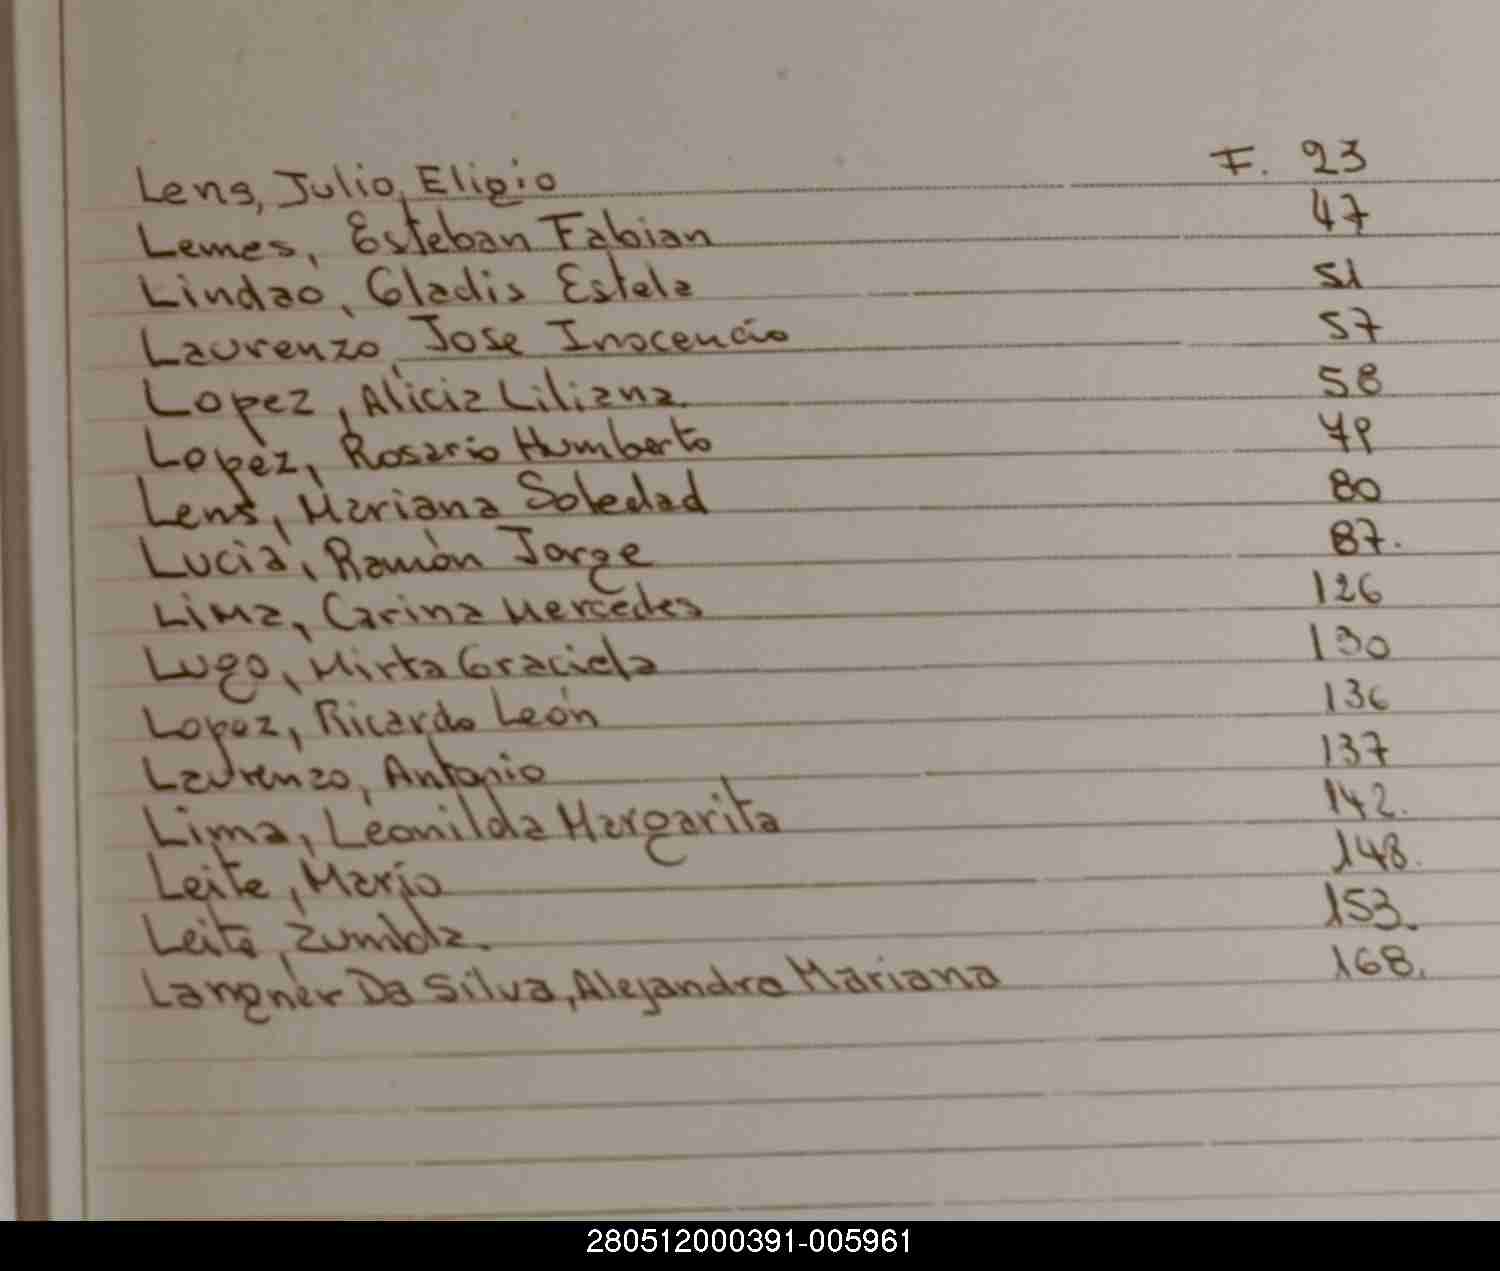 Lens, Julio, Eligio F. 23
Lemes, Esteban Fabian 47
Lindao, Gladis Estela 51
Laurenzo, Jose Inocencio 57
Lopez, Alicia Liliana. 58
Lopez, Rosario Humberto 79
Lens, Mariana Soledad 80
Lucia, Ramón Jorge 87.
Lima, Carina Mercedes 126
Lugo, Mirta Graciela 130
Lopez, Ricardo León 136
Laurenzo, Antonio 137
Lima, Leonilda Margarita 142.
Leite, Mario 148.
Leite, Zumilda. 153.
Langner Da Silva, Alejandra Mariana 168.
280512000391-005961